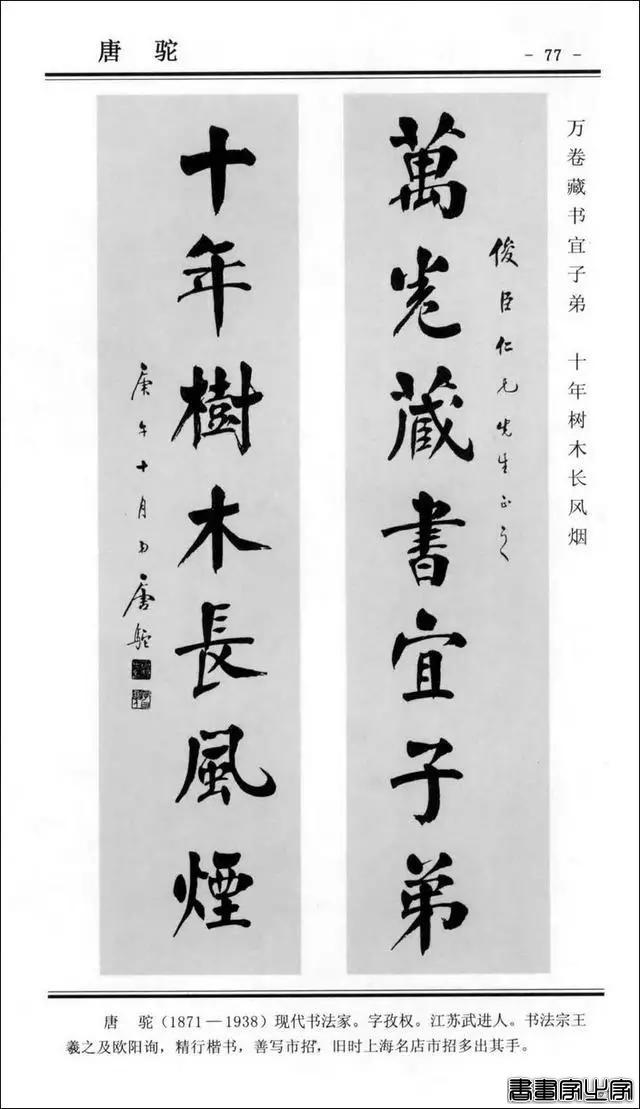 唐 驼
- 77 -
万卷藏书宜子弟 十年树木长风烟
俊臣仁兄先生正之
萬卷藏書宜子弟
十年樹木長風煙
庚午十月 唐駝
唐 驼(1871—1938)现代书法家。字孜权。江苏武进人。书法宗王
羲之及欧阳询,精行楷书,善写市招,旧时上海名店市招多出其手。
書畫家之家